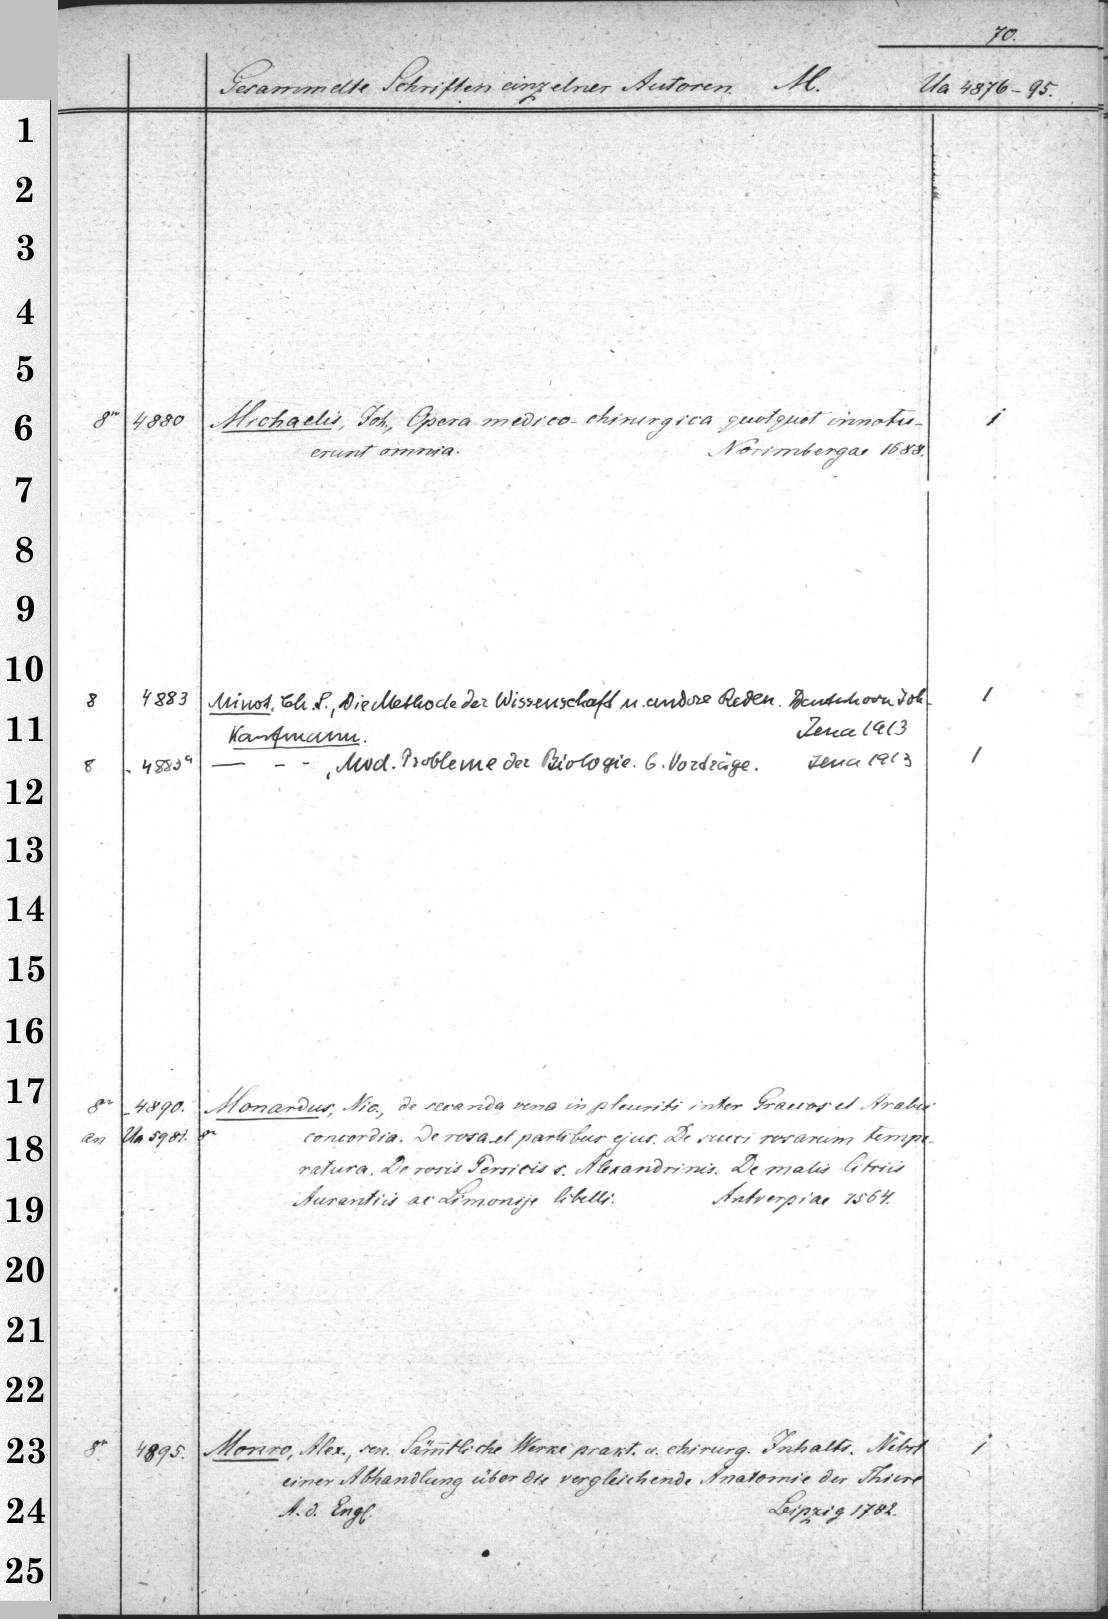 70.
Gesammelte Schriften einzelner Autoren. M. Ua 4876-95.
1
2
3
4
5
6
8° 4880 Michaelis, Joh., Opera medico-chirurgica quotquot innotu- 1
erunt omnia. Norimbergae 1688.
7
8
9
10
8 4883 Minot, Ch. S., Die Methode der Wissenschaft u. andere Reden. Deutsch von Joh. 1
11
Kaufmann. Jena 1913
8 4883a — - - , Mod. Probleme der Biologie. 6. Vorträge. Jena 1913 1
12
13
14
15
16
17
8° 4890. Monardus, Nic., de secanda vena in pleuriti inter Graecos et Arabes
18
an Ua 5987. 8° concordia. De rosa et partibus ejus. De succi rosarum tempe-
ratura. De rosis Persicis s. Alexandrinis. De malis Citriis
19
Aurantiis ac Limonije libelli. Antverpiae 1564.
20
21
22
23
8° 4895. Monro, Alex., sen. Sämtliche Werke prakt. u. chirurg. Inhalts. Nebst 1
einer Abhandlung über die vergleichende Anatomie der Thiere
24
A. d. Engl. Leipzig 1782.
25